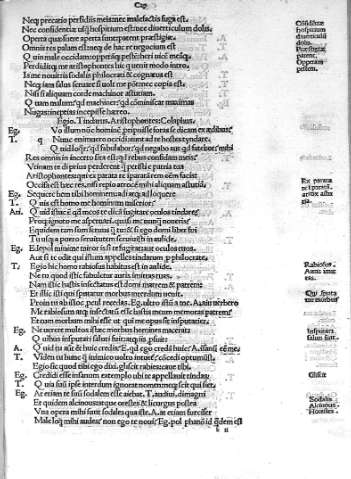 Cap
Neq; precatio perfidiis meis nec malefactis fuga est.
Nec confidentiæ usq; hospitium est nec diverticulum dolis.
Operta quæ fuere aperta sunt: patent præstigiæ.
Omnis res palam est: neq; de hac re negocium est
Quin male occidam: oppetaq; pestem heri uicē meāq;
Perdidit me aristophontes hic q uenit modo intro.
Is me nouit: is sodalis philocrati & cognatus est
Neq; iam salus seruare si uolt me potest: nec copia est.
Nisi si aliquam corde machinor astutiam.
Quam malum? quid machiner? quid cōminiscar? maximas
Nugas: ineptias incipisse hæreo.
Egio. Tindarus. Aristophontes: Colaphus.
Eg. Quo illum nūc hominē proripuisse foras se dicam ex ædibus?
T. Nunc enimuero occidi: eunt ad te hostes tyndare.
Quid loqr? qd fabulabor? qd negabo aut qd fatebor? mihi
Res omnis in incerto sita est: quid rebus confidam meis?
Vtinam te di prius perderent q̃ periisti e patria tua
Aristophontes: qui ex parata re imparatam omnem facis.
Occisa est hæc res: nisi reperio atrocē mihi aliquam astutiā.
Eg. Sequere. hem tibi hominem: adi: atq; adloquere
T. Quis est homo me hominum miserior?
Ari. Quid istuc ē qd meos te dicā fugitare oculos tindare?
Proq; ignoto me aspernari: quasi me nunq̃ noueris?
Equidem tam sum seruus q̃ tu: & si ego domi liber fui
Tu usq; a puero seruitutem seruiuisti in alide.
Eg. Edepol minime miror si aut te fugitat aut oculos tuos.
Aut si te odit qui istum appelles tindarum p philocrate.
T. Egio hic homo rabiosus habitus est in alide.
Ne tu quod istic fabuletur auris immittas tuas.
Nam istic hastis insectatus est domi matrem & patrem:
Et illic isti qui sputatur morbus interdum uenit.
Proin tu ab istoc procul recedas. Eg. ultro istū a me. A. ain uerbero
Me rabiosum atq; insectatū esse hastis meum memoras patrem?
Et eum morbum mihi esse ut qui me opus sit insputarier.
Eg. Ne uerere: multos iste morbus homines macerat:
Quibus insputari saluti fuit: atq; iis profuit
A. Quid tu aūt? & huic credis? E. qd ego credā huic? A. insanū eē me.
T. Viden tu hunc q̃ inimico uoltu intuet̄? cōcedi optimū est.
Egio: fit quod tibi ego dixi. gliscit rabies: caue tibi.
Eg. Credidi esse insanum extemplo ubi te appellauit tindarū
T. Quin suū ipse interdum ignorat nomen: neq; scit qui siet.
Eg. At etiam te suū sodalem esse aiebat. T. haud uidi magis
Et quidem alcmæus atq; orestes & licurgus postea
Vna opera mihi sunt sodales qua iste. A. at etiam furcifer
Male loqi mihi audes? non ego te noui? Eg. pol planū id qdem est
Cōfidētiæ hospitium diuerticulū dolis.
Præstigiæ patent.
Oppetam pestem.
Ex parata re imparatā
Rabiosus.
Auris immittere.
Qui sputatur morbus
Insputari saluti fuit.
Gliscit
Sodalis